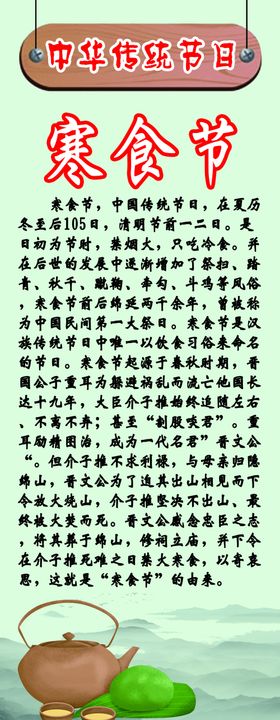 中华传统节日
寒食节
寒食节，中国传统节日，在夏历
冬至后105日，清明节前一二日。是
日初为节时，禁烟火，只吃冷食。并
在后世的发展中逐渐增加了祭扫、踏
青、秋千、蹴鞠、牵勾、斗鸡等风俗
，寒食节前后绵延两千余年，曾被称
为中国民间第一大祭日。寒食节是汉
族传统节日中唯一以饮食习俗来命名
的节日。寒食节起源于春秋时期，晋
国公子重耳为躲避祸乱而流亡他国长
达十九年，大臣介子推始终追随左右
、不离不弃；甚至“割股啖君”。重
耳励精图治，成为一代名君”晋文公
“。但介子推不求利禄，与母亲归隐
绵山，晋文公为了迫其出山相见而下
令放火烧山，介子推坚决不出山、最
终被火焚而死。晋文公感念忠臣之志
，将其葬于绵山，修祠立庙，并下令
在介子推死难之日禁火寒食，以寄哀
思，这就是“寒食节”的由来。